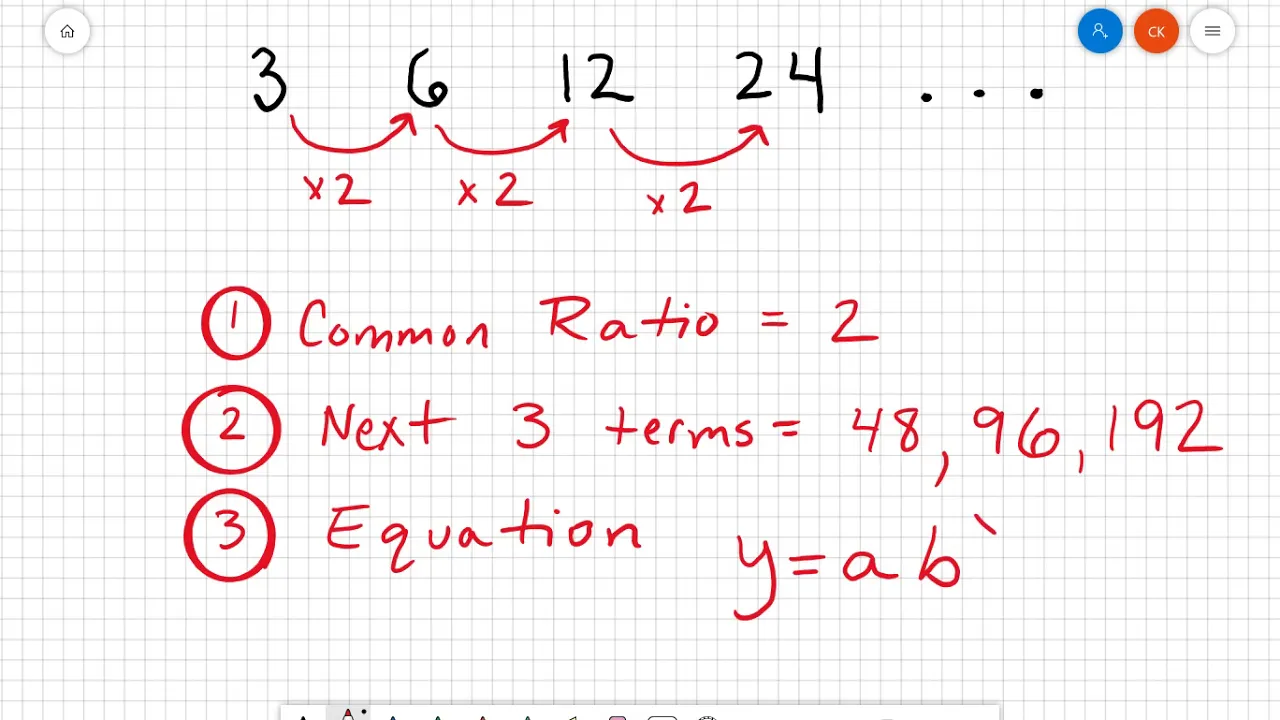 CK
3 6 12 24 ...
×2 ×2 ×2
1 Common Ratio = 2
2 Next 3 terms = 48, 96, 192
3 Equation y = ab